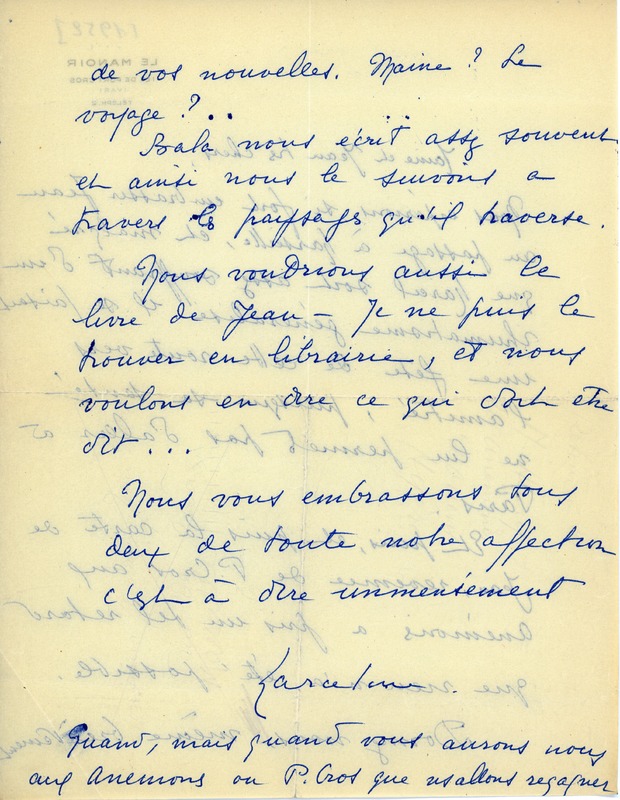 de vos nouvelles. Marne ? Le
voyage ?..
Bala nous écrit assz souvent
et ainsi nous le suivons a
travers les paysages qu'il traverse.
Nous voudrions aussi le
livre de Jean — Je ne puis le
trouver en librairie, et nous
voulons en dire ce qui doit etre
dit...
Nous vous embrassons tous
deux de toute notre affection
c'est à dire immensément
Quand, mais quand vous aurons nous
aux Anemons ou P. Cros que ns allons regagner